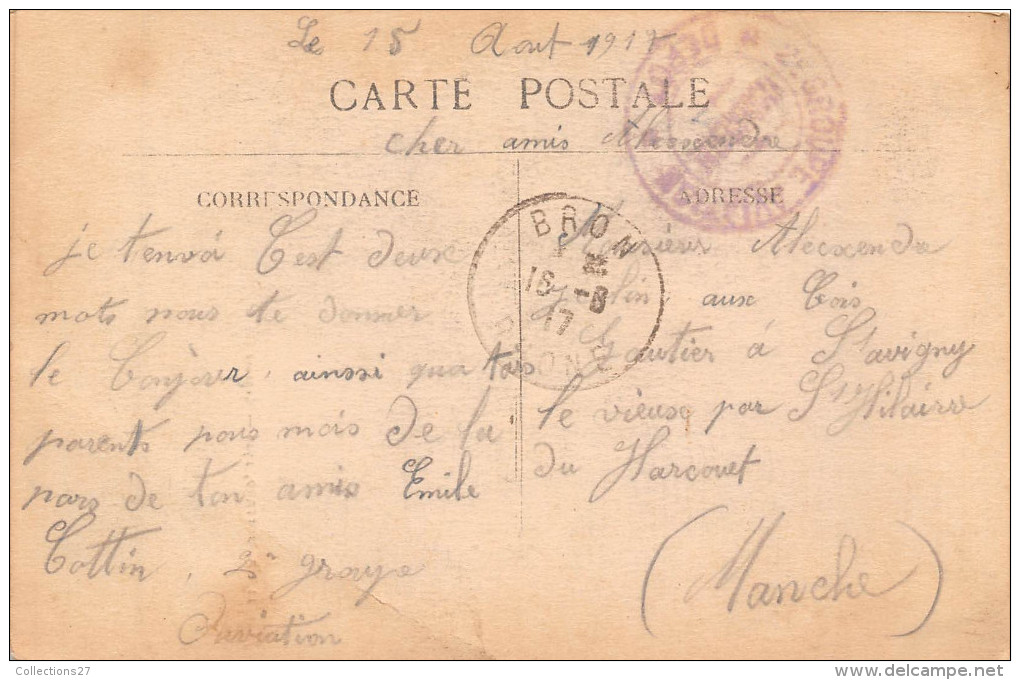 Le 15 Aout 1917
CARTE POSTALE
cher amis Alexcendre
CORRESPONDANCE
je tenvoi C'est deuse
mots pous te donner
le Conjour ainssi qua tais
parents pous mois de la
pars de ton amis Emile
Cottin, 2e groupe
Daviation
ADRESSE
Monsieur Alecxendre
aux Cois
Gautier á St avigny
le vieuse par St Hilaire
du Harcouet
(Manche)
BRON
16 -8
17
RHONE
2e GROUPE
Collections27
www.delcampe.net